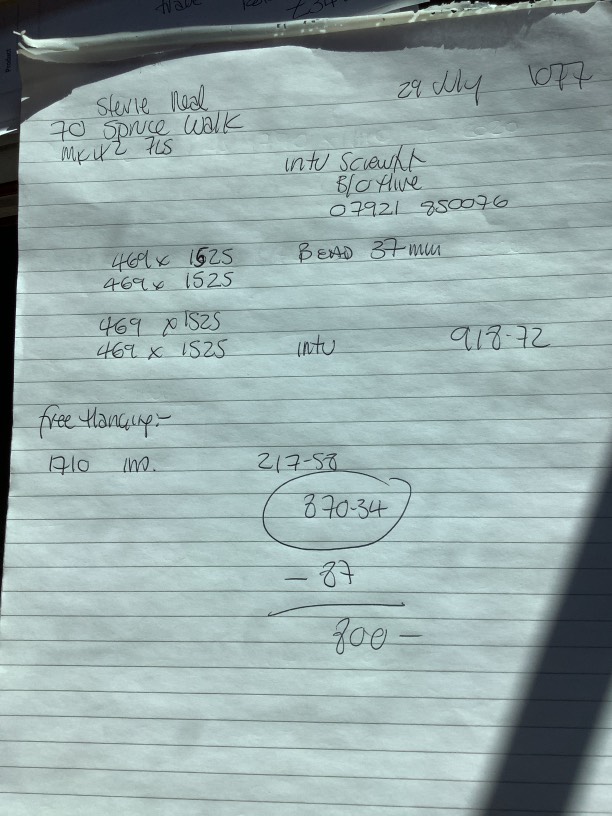 29 July 1077
Stevie Neal
70 Spruce Walk
MK42 7LS
intu
B/O Hive
07921 850076
469 x 1525 BEAD 37mm
469 x 1525
469 x 1525
469 x 1525 intu 918-72
free Hanging:-
1710 217-58
870-34
- 87
800 -